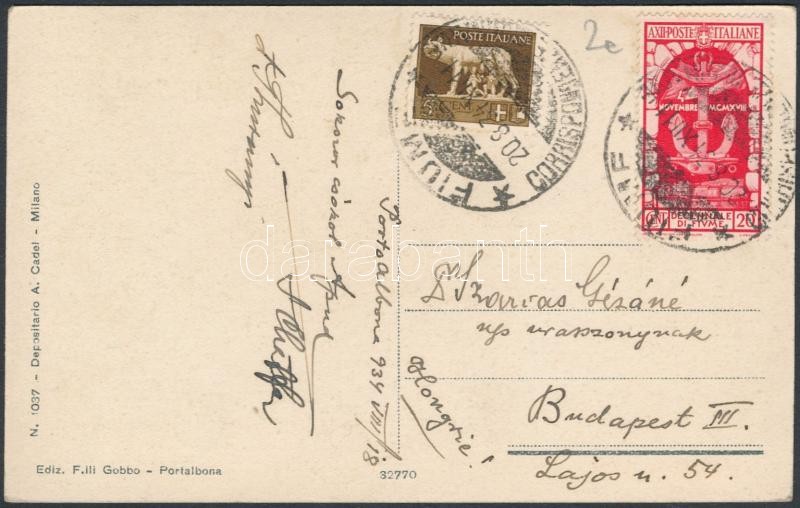 2e
POSTE ITALIANE
5 CENT
A XII - POSTE ITALIANE
NOVEMBRE MCMXVIII
CENT 20
DECENNALE
DI FIUME
FIUME
CORRISPONDENZE
20.8
FIUME
CORRISPONDENZE
Portoalbona 934 VIII/18
Sokszor csókol Apud
Szarvas Gézáné
úrasszonynak
Budapest III.
Lajos u. 54.
Hongrie!
darabanth
N. 1037 - Depositario A. Cadel - Milano
Ediz. F.lli Gobbo - Portalbona
32770